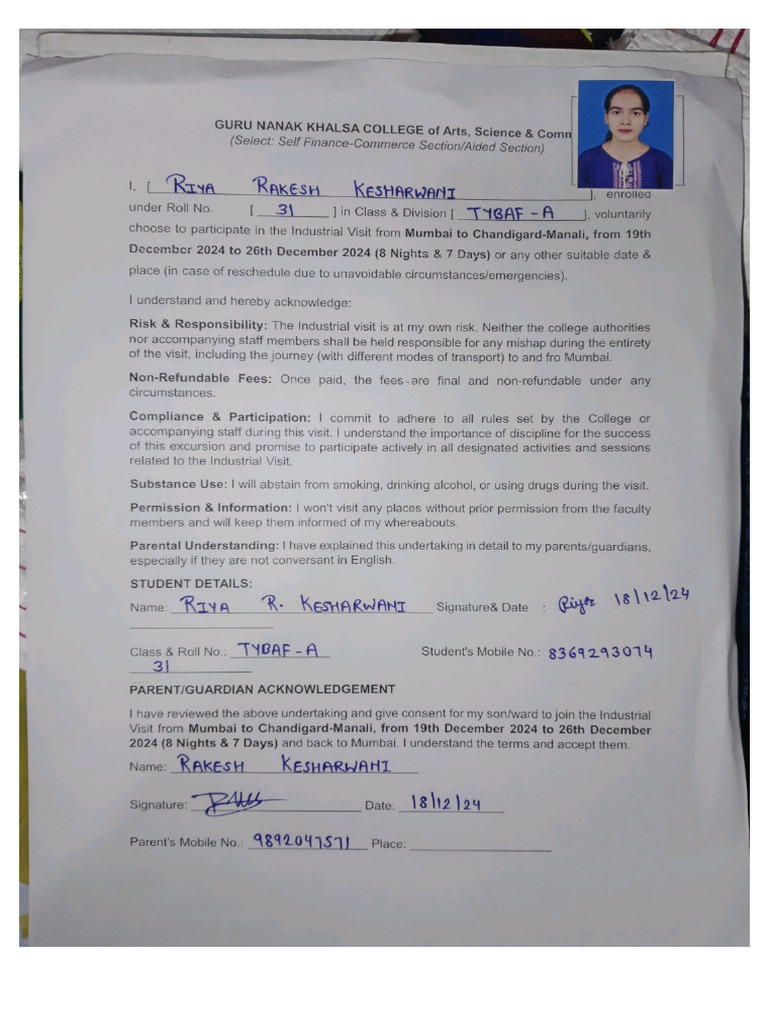 GURU NANAK KHALSA COLLEGE of Arts, Science & Comm
(Select: Self Finance-Commerce Section/Aided Section)
I, [ RIYA RAKESH KESHARWANI ], enrolled
under Roll No. [ 31 ] in Class & Division [ TYBAF - A ], voluntarily
choose to participate in the Industrial Visit from Mumbai to Chandigard-Manali, from 19th
December 2024 to 26th December 2024 (8 Nights & 7 Days) or any other suitable date &
place (in case of reschedule due to unavoidable circumstances/emergencies).
I understand and hereby acknowledge:
Risk & Responsibility: The Industrial visit is at my own risk. Neither the college authorities
nor accompanying staff members shall be held responsible for any mishap during the entirety
of the visit, including the journey (with different modes of transport) to and fro Mumbai.
Non-Refundable Fees: Once paid, the fees are final and non-refundable under any
circumstances.
Compliance & Participation: I commit to adhere to all rules set by the College or
accompanying staff during this visit. I understand the importance of discipline for the success
of this excursion and promise to participate actively in all designated activities and sessions
related to the Industrial Visit.
Substance Use: I will abstain from smoking, drinking alcohol, or using drugs during the visit.
Permission & Information: I won't visit any places without prior permission from the faculty
members and will keep them informed of my whereabouts.
Parental Understanding: I have explained this undertaking in detail to my parents/guardians,
especially if they are not conversant in English.
STUDENT DETAILS:
Name: RIYA R. KESHARWANI Signature& Date : 18/12/24
Class & Roll No.: TYBAF - A Student's Mobile No.: 8369293074
31
PARENT/GUARDIAN ACKNOWLEDGEMENT
I have reviewed the above undertaking and give consent for my son/ward to join the Industrial
Visit from Mumbai to Chandigard-Manali, from 19th December 2024 to 26th December
2024 (8 Nights & 7 Days) and back to Mumbai. I understand the terms and accept them.
Name: RAKESH KESHARWANI
Signature: Date: 18/12/24
Parent's Mobile No.: 9892047571 Place: